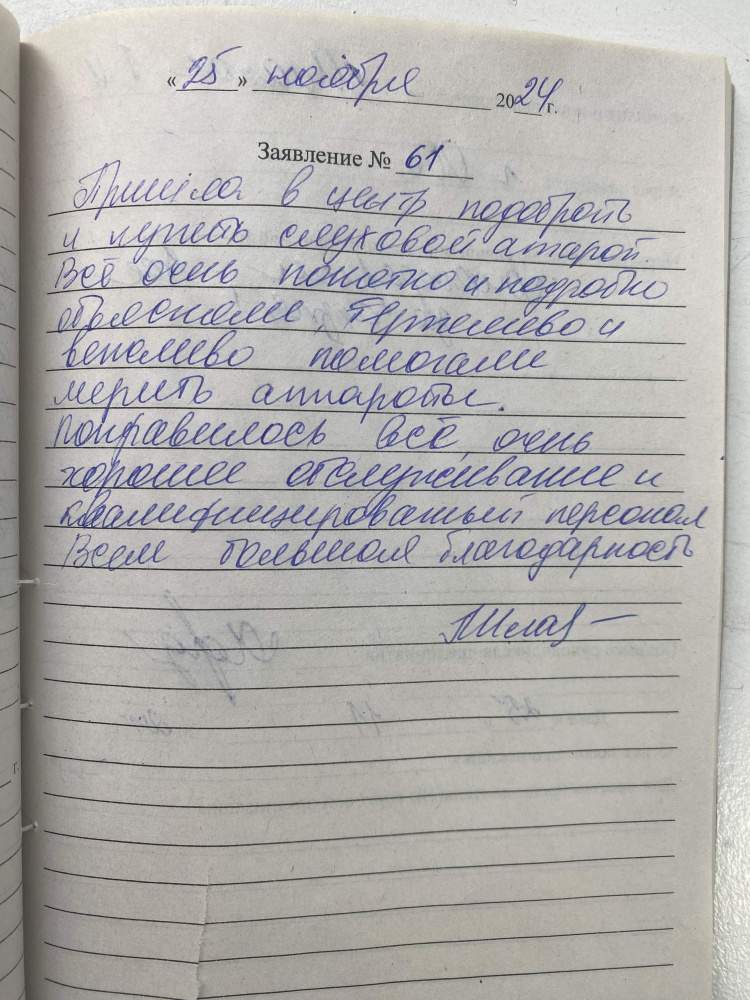 « 25 » ноября 2024 г.
Заявление № 61
Пришла в центр подобрать
и купить слуховой аппарат.
Всё очень понятно и подробно
объяснили, терпеливо и
вежливо помогали
мерить аппараты.
Понравилось всё, очень
хорошее обслуживание и
квалифицированый персонал
Всем большая благодарность